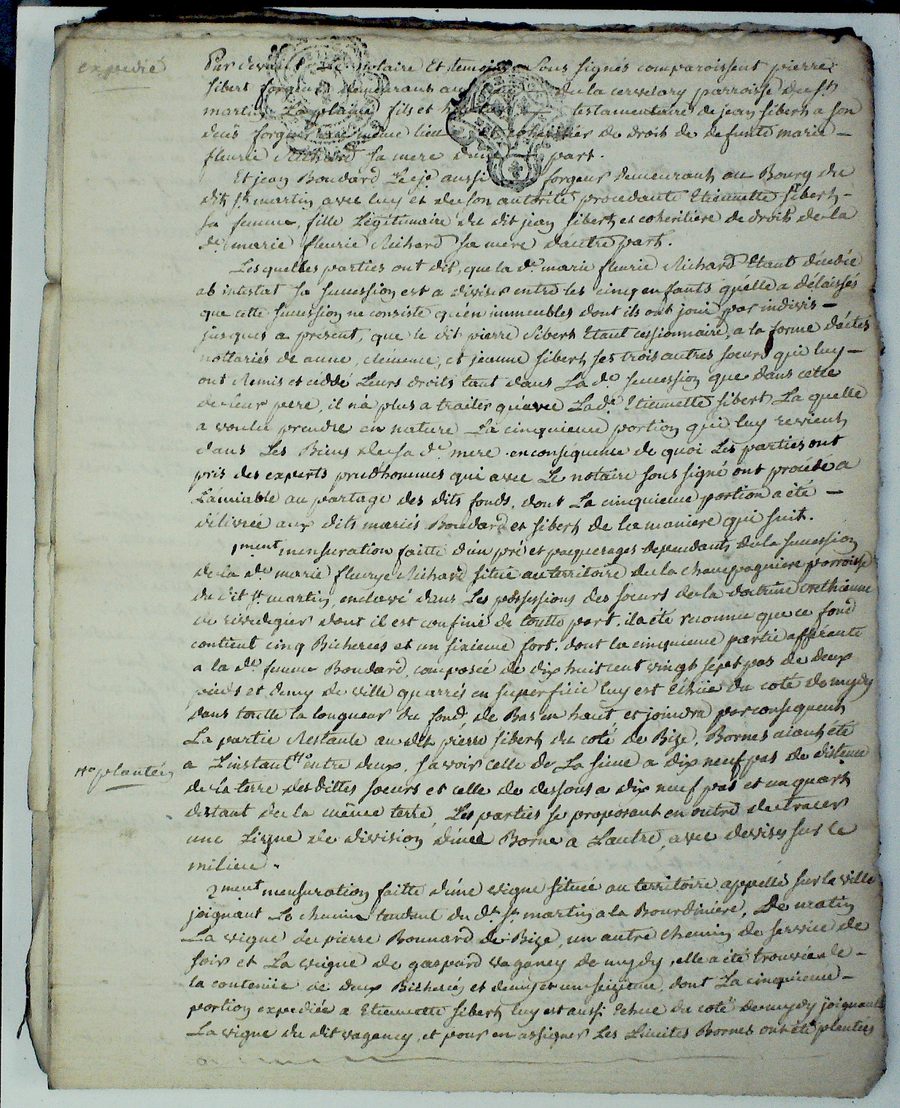 expedié
Par devant le notaire Et temoins Sous signés comparoissent pierre
Sibert forgeur demeurant au de la cervelary parroisse de St
martin La plaine fils et testamentaire de jean Sibert a son
forgeur meme lieu coheritier de droit de defunte marie –
fleurie Richard Sa mere d'une part.
Et jean Boudard Le je. aussi forgeur demeurant au Bourg du
dit St martin avec luy et de son autorité procedante Etiennette Sibert –
sa femme, fille Legitimaire du dit jean Sibert et coheritiere de droit de la
de. marie fleurie Richard Sa mere dautre part.
Lesquelles parties ont dit, que la de. marie fleurie Richard Etant decedée
ab intestat Sa Succession est a diviser entre les cinq enfants quelle a délaissés
que cette Succession ne consiste qu'en immeubles dont ils ont joui par indivis –
jusques a présent, que le dit pierre Sibert Etant cessionnaire, a la forme d'actes
nottariés de anne, clemence, et jeanne Sibert ses trois autres Soeurs qui luy –
ont Remis et céddé Leurs droits tant dans La de. Succession que dans cette
de leur pere, il n'a plus a traiter qu'avec La de. Etiennette Sibert La quelle
a voulu prendre en nature La cinquieme portion qui luy revient
dans Les Biens de sa de. mere. en consequence de quoi Les parties ont
pris des experts prudhommes qui avec Le notaire Sous signé ont procédé a
L'amiable au partage des dits fonds, dont La cinquieme portion a été –
délivrée aux dits mariés Boudard et Sibert de la maniere qui Suit.
1ment mensuration faitte d'un pré et paquerages dependants de la Succession
de la de. marie fleurye Richard Situé au territoire de la champagniere parroisse
du dit St. martin, enclavé dans Les possessions des Soeurs de la doctrine crethienne
de rivedegier dont il est confiné de toutte part. il a été reconnu que ce fond
contient cinq Bicherées et un sixieme fort. dont la cinquieme partie afférante
a la de. femme Boudard, composée de dix huit cent vingt Sept pas de deux
pieds et demy de ville quarrés en Superficie luy est Echüe du coté de mydy
dans toutte la longueur du fond, de Bas en haut et joindra par consequent
La partie Restante au dit pierre Sibert du coté de Bize, Bornes aiant été
a L'instant entre deux, Savoir celle de La Sime a dix neuf pas de distance
tte planteés
de la terre des dittes Soeurs et celle de dessous a dix neuf pas et un quart
distant de la même terre, Les parties Se proposant en outre de tracer
une Ligne de division d'une Borne a Lautre, avec devises Sur le
milieu.
2ment mensuration faitte d'une vigne Située au territoire appellé Sur la ville
joignant Le chemin tendant du dt. St. martin a la Bourdiniere, De matin
La vigne de pierre Bonnard de Bize, un autre chemin de Service de
Soir et La vigne de gaspard vaganey de mydy, elle a été trouvée de –
la contenüe de deux Bicherées et demy et un Seizieme, dont La cinquieme –
portion expediée a Etiennette Sibert luy est aussi Echue du coté de mydy joignant
La vigne du dit vaganey, et pour en assigner Les Limites Bornes ont été plantées